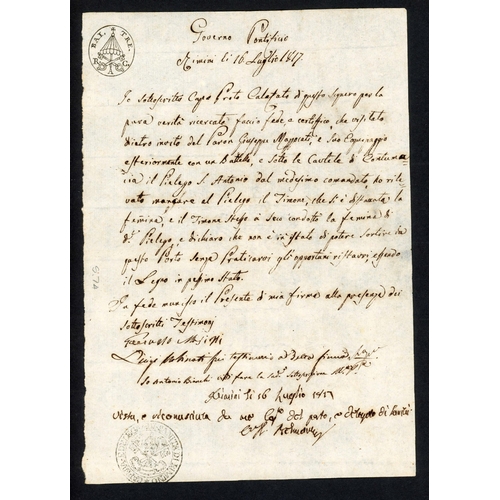 BAI. TRE.
Governo Pontificio
Rimini li 16 Luglio 1817
Io sottoscritto Capo Proto Calafato di questo Squero per la
pura verità ricercato, faccio fede, e certifico che visitato
dietro invito del Paron Giuseppe e Suo Equipaggio
esteriormente con un Battello, e sotto le Cautele di Contuma-
cia il Pielego S. Antonio dal medesimo comandato, ho rile-
vato mancare al Pielego il Timone, che si è la
femina, e il Timone stesso à seco la femina di
d.º Pielego, e dichiaro che non è in istato di potere sortire da
questo Porto senza Praticarvi gli opportuni ristauri, essendo
il Legno in pessimo stato.
In fede munisco il Presente di mia firma alla presenza dei
sottoscritti Testimonj
Francesco
Luigi fui testimonio
Io Antonio Bianchi
Rimini li 16 Luglio 1817
Vista, e riconosciuta da me Cap.º del porto, e di Sanità
574